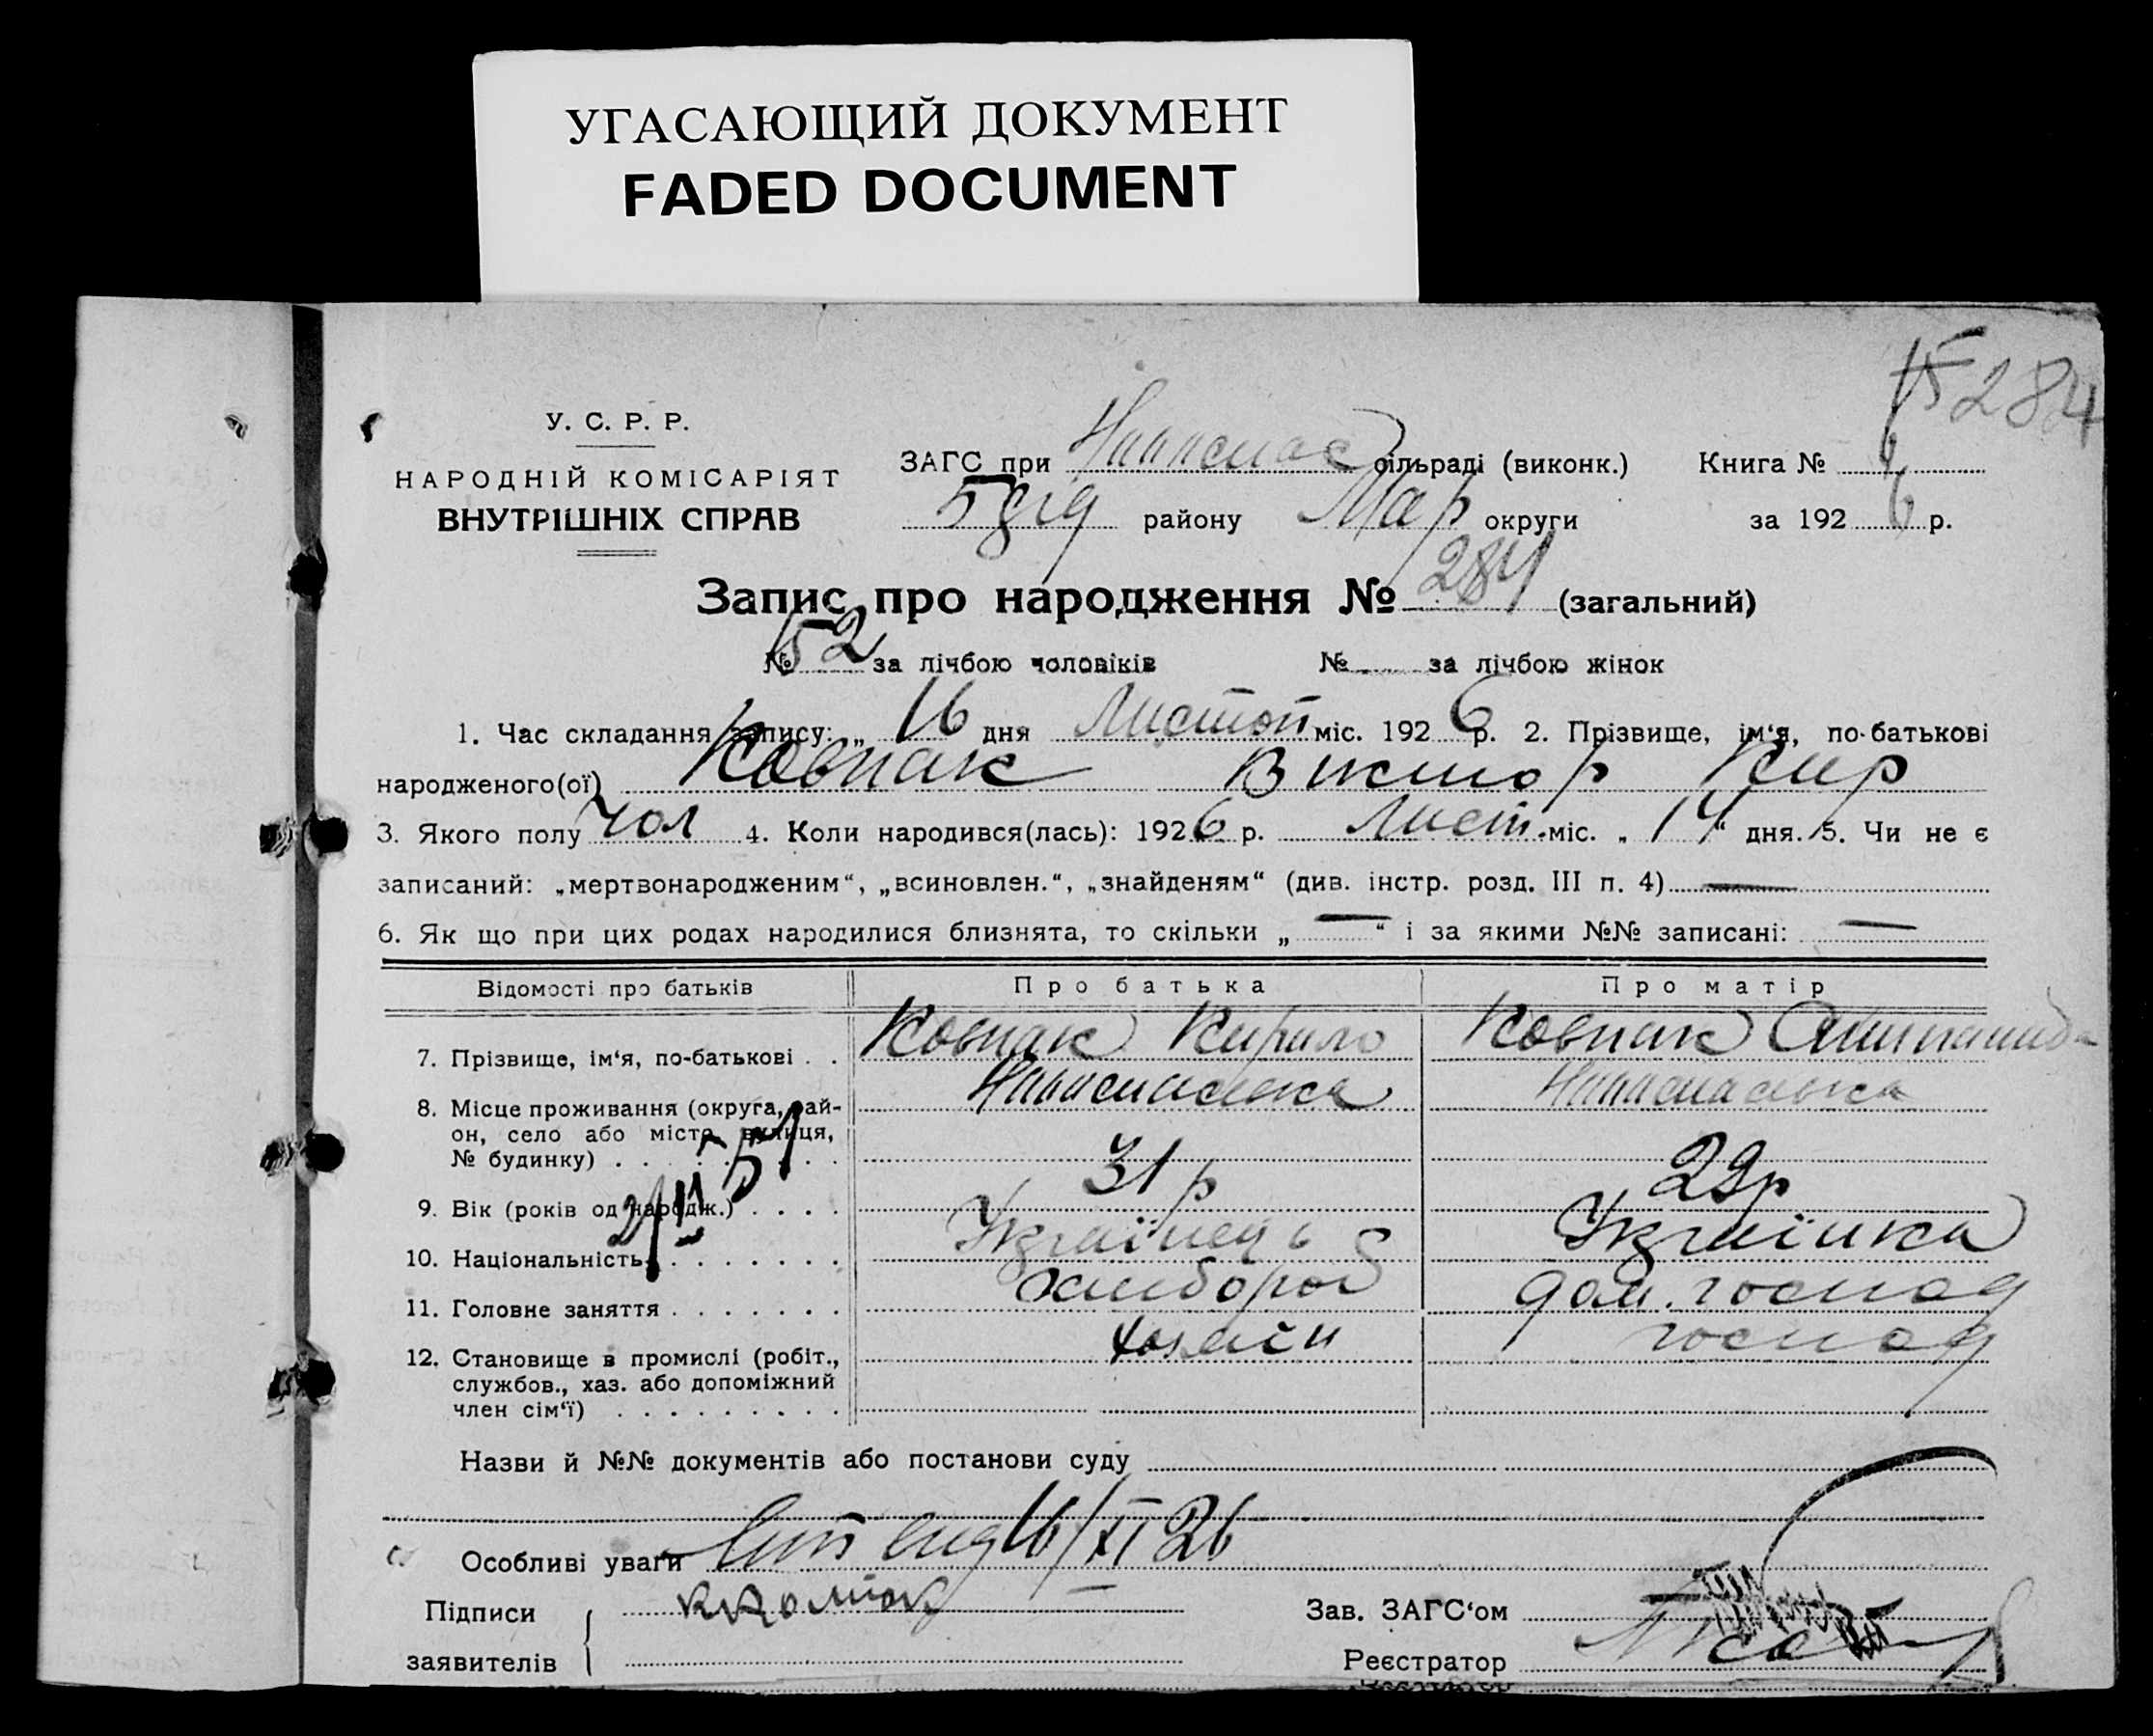 УГАСАЮЩИЙ ДОКУМЕНТ
FADED DOCUMENT
15284
У. С. Р. Р.
НАРОДНІЙ КОМІСАРІЯТ
ВНУТРІШНІХ СПРАВ
ЗАГС при сільраді (виконк.) Книга №
району Мар округи за 1926 р.
Запис про народження № 284 (загальний)
№ 152 за лічбою чоловіків № за лічбою жінок
1. Час складання запису: „ 16 дня Листоп міс. 1926 р. 2. Прізвище, ім‘я, по-батькові
народженого(ої) Ковпак Виктор Кир
3. Якого полу чол 4. Коли народився(лась): 1926 р. Лист. міс. „ 14 “ дня. 5. Чи не є
записаний: „мертвонародженим“, „всиновлен.“, „знайденям“ (див. інстр. розд. III п. 4) —
6. Як що при цих родах народилися близнята, то скільки „ — “ і за якими №№ записані: —
Відомості про батьків Про батька Про матір
7. Прізвище, ім‘я, по-батькові . . Ковпак Кирило Ковпак
8. Місце проживання (округа, рай-
он, село або місто, вулиця,
№ будинку) . . . . . . . .
9. Вік (років од народж.) . . . . 31 р 29 р
10. Національність . . . . . . . . Українець Українка
11. Головне заняття . . . . . . . хлибороб дом. господ
12. Становище в промислі (робіт., хазаїн господ
службов., хаз. або допоміжний
член сім‘ї) . . . . . . . . .
Назви й №№ документів або постанови суду
Особливі уваги 16/XI 26
Підписи Зав. ЗАГС‘ом
заявителів Реєстратор